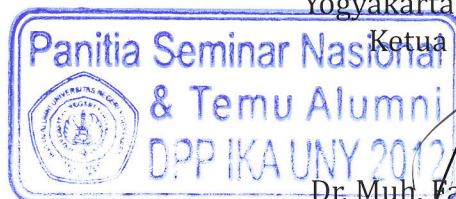 Yogyakarta
Ketua
Panitia Seminar Nasional
& Temu Alumni
DPP IKA UNY 2012
Dr. Muh. Fa